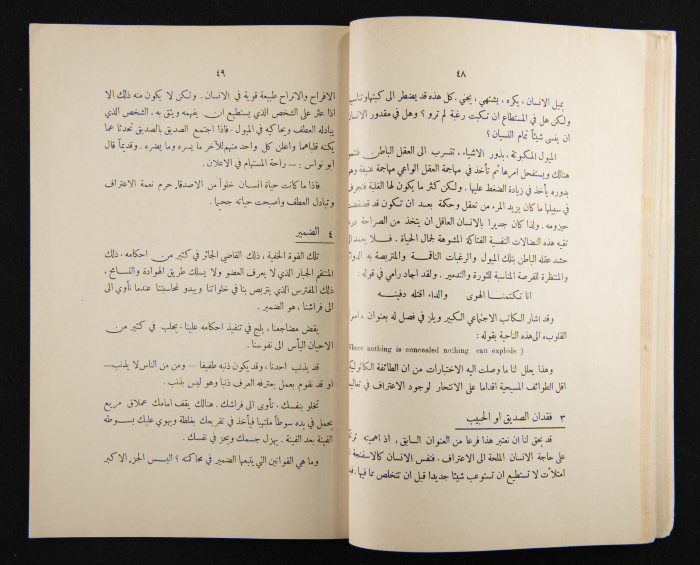 ٤٨
يميل الانسان ، يكره ، يشتهي ، يخي . كل هذه قد يضطر الى كبتها وتناسيها
ولكن هل في المستطاع ان تكبت رغبة لم تروَ ؟ وهل في مقدور الانسان
ان ينسى شيئاً تمام النسيان ؟
الميول المكبوتة ، بذور الاشياء ، تتسرب الى العقل الباطن . فتنمو
هنالك ويستفحل امرها ثم تأخذ في مهاجمة العقل الواعي مهاجمة عنيفة وهو
بدوره يأخذ في زيادة الضغط عليها . ولكن كثر ما يكون لها الغلبة فتجرف
في سبيلها ما كان يزيد المرء من تعقل وحكمة بعد ان تكون قد
حيزومه . ولذا كان جديرا بالانسان العاقل ان يتخذ من الصراحة درعا
تقيه هذه النضالات النفسية الفتاكة المشوهة لجمال الحياة . فلا يعمد الى
حشد عقله الباطن بتلك الميول والرغبات الناقمة والمتربصة به
والمنتظرة للفرصة المناسبة للثورة والتدمير . ولقد اجاد رامي في قوله :
انا تكتمنا الهوى والداء اقتله دفينه
وقد اشار الكاتب الاجتماعي الكبير ويلز في فصل له بعنوان
القلوب» الى هذه الناحية بقوله :
Where nothing is concealed nothing can explode )
وهذا يعلل لنا ما وصلت اليه الاختبارات من ان الطائفة الكاثوليكية
اقل الطوائف المسيحية اقداما على الانتحار لوجود الاعتراف في
٣ فقدان الصديق او الحبيب
قد يحق لنا ان نعتبر هذا فرعا من العنوان السابق ، اذ اهميته
على حاجة الانسان الملحة الى الاعتراف . فنفس الانسان كالاسفنجة
امتلأت لا تستطيع ان تستوعب شيئا جديدا قبل ان تتخلص مما فيها .
٤٩
الافراح والاتراح طبيعة قوية في الانسان . ولكن لا يكون منه ذلك الا
اذا عثر على الشخص الذي يستطيع ان يفهمه ويثق به ، الشخص الذي
يبادله العطف ويحاكيه في الميول . فاذا اجتمع الصديق بالصديق تحدثا عما
يكنه قلباهما واعلن كل واحد منهم للآخر ما يسره وما يضره . وقديماً قال
ابو نواس : — راحة المستهام في الاعلان .
فاذا ما كانت حياة انسان خلواً من الاصدقاء حرم نعمة الاعتراف
وتبادل العطف واصبحت حياته جحيما .
٤ الضمير
تلك القوة الخفية ، ذلك القاضي الجائر في كثير من احكامه ، ذلك
المنتقم الجبار الذي لا يعرف العفو ولا يسلك طريق الهوادة والتسامح ،
ذلك المفترس الذي يتربص بنا في خلواتنا ويبدو لمحاسبتنا عندما نأوي الى
الى فراشنا ، هو الضمير .
يقض مضاجعنا ، يلح في تنفيذ احكامه علينا ، يجلب في كثير من
الاحيان اليأس الى نفوسنا .
قد يذنب احدنا ، وقد يكون ذنبه طفيفا — ومن من الناس لا يذنب —
او قد نقوم بعمل يعترفه العرف ذنبا وهو ليس بذنب .
تخلو بنفسك . تأوى الى فراشك . هنالك يقف امامك عملاق مريع
يحمل في يده سوطاً ملتهبا فيأخذ في تقريعك بغلظة ويهوي عليك بسوطه
الفينة بعد الفينة . يهزل جسمك ويحز في نفسك .
وما هي القوانين التي يتبعها الضمير في محاكمته ؟ اليس الجزء الاكبر